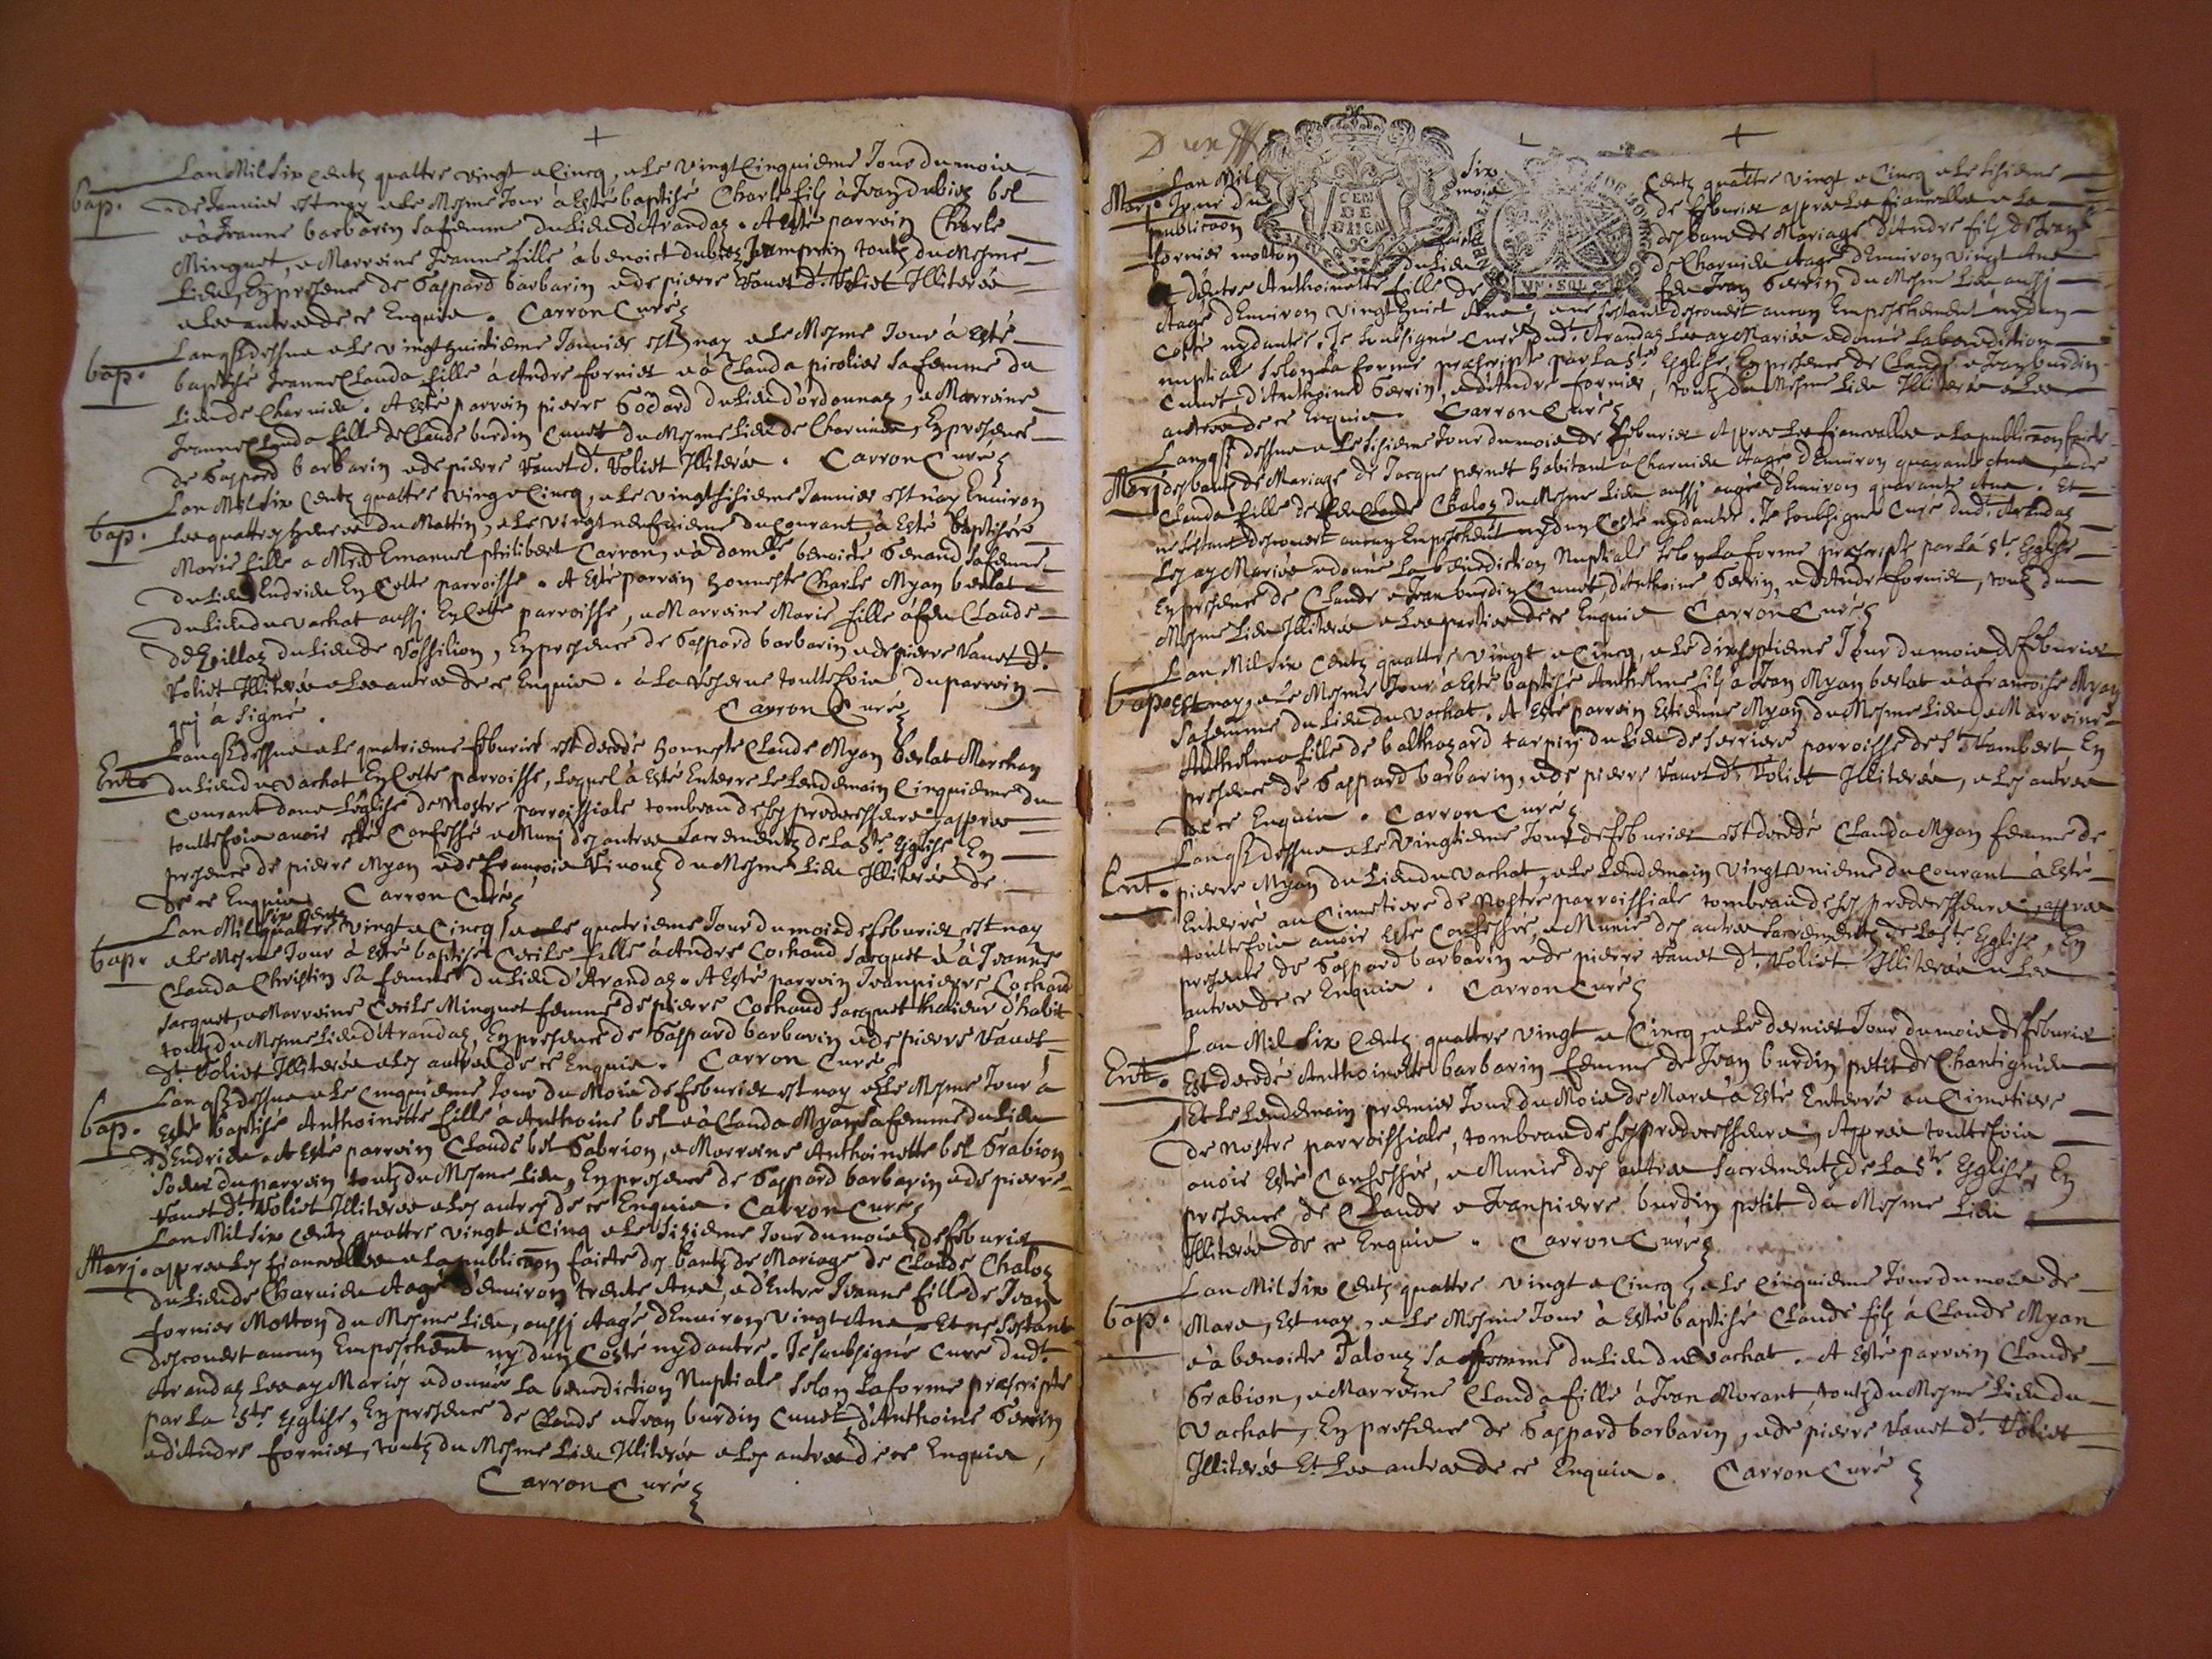 Lan Mil six centz quattre vingt e Cincq, e le vingt Cinquieme Jour du mois
bap. de Januier est nay e le Mesme Jour à Esté baptisé Charle fils à Jean dubiez bel
e à Jeanne barbarin sa femme du Lieu d'Arandaz. A Esté parrein Charle
Minguet, e Marreine Jeanne fille à benoict dubiez Jeamprein toutz du Mesme
Lieu, En presence de Gaspard barbarin e de pierre Vanet dt. Voliet Illiterés
e Les autres de ce Enquis. Carron Curé
Lan qs dessus e le vingthuictieme Januier est nay e le Mesme Jour à Esté
bap. baptisé Jeanne Clauda fille à Andre fornier e à Clauda picolier sa femme du
Lieu de Charuieu. A Esté parrein pierre Godard du Lieu d'ordonnaz, e Marreine
Jeanne Clauda fille de Claude burdin Cunet du Mesme Lieu de Charuieu, En presence
de Gaspard barbarin e de pierre Vanet dt. Voliet Illiterés. Carron Curé
Lan Mil six centz quattre ving e Cincq, e le vingtsisieme Januier est nay Enuiron
bap. les quattre heures du Mattin, e le vingtneufuieme du courant à Esté baptisée
Marie fille a Mre Emanuel philibert Carron, e à damlle benoicte Genand sa femme
du Lieu d'Endrieu En Cette parroisse. A Esté parrein honneste Charle Myan berlat
du Lieu du vachat aussj En Cette parroisse, e Marreine Marie fille à feu Claude
de Lillaz du Lieu de Vossilion, En presence de Gaspard barbarin e de pierre Vanet dt.
Voliet Illiterés e Les autres de ce Enquis. à La reserue touttefois du parrein
quj à signé. Carron Curé
Lan qs dessus e le quatrieme feburier est decedé honneste Claude Myan berlat Marchan
Ent. du Lieu du vachat En Cette parroisse, Lequel à Esté Enterré Le Lendemain Cinquieme du
Courant dans L'Eglise de Nostre parroissiale tombeau de ses predecesseurs, appres
touttefois auoir esté Confessé e Munj des autres sacrementz de La Ste. Eglise, En
presence de pierre Myan e de francois Vinoux du Mesme Lieu Illiterés de
De ce Enquis Carron Curé
six centz
Lan Mil quattre vingt e Cincq, e le quatrieme Jour du mois de feburier est nay
bap. e le Mesme Jour à Esté baptisé Cecile fille à Andre Cochand Jacquet e à Jeanne
Clauda Christin sa femme du Lieu d'Arandaz. A Esté parrein Jeanpierre Cochand
Jacquet, e Marreine Cecile Minguet femme de pierre Cochand Jacquet thaieur d'habit
toutz du Mesme Lieu d'Arandaz, En presence de Gaspard barbarin e de pierre Vanet
dt. Voliet Illiterés e Les autres de ce Enquis. Carron Curé
Lan qs dessus e le cinquieme Jour du Mois de feburier est nay e le Mesme Jour à
bap. Esté baptisé Anthoinette fille à Anthoine bel e à Clauda Myan sa femme du Lieu
d'Endrieu. A Esté parrein Claude bel Gabrion, e Marreine Anthoinette bel Grabion
soeur du parrein toutz du Mesme Lieu, En presence de Gaspard barbarin e de pierre
Vanet dt. Voliet Illiterés e Les autres de ce Enquis. Carron Curé
Lan Mil six centz quattre vingt e Cinq e le sisieme Jour du mois de feburier
Marj. appres Les fiancealles e La publicaon faicte des bantz de Mariage de Claude Chaloz
du Lieu de Charuieu Aagé d'enuiron trente Ans, e d'Entre Jeanne fille de Jean
fornier Motton du Mesme Lieu, aussj Aagé d'Enuiron vingt Ans. Et ne s'estant
descouuert aucun Empeschent ny d'un Costé ny d'autre. Je soubsigné Curé dudt.
Arandaz Les ay Mariés e donné La benediction Nuptiale selon La forme prescripte
par La Ste. Eglise, En presence de Claude e Jean burdin Cunet d'Anthoine Gerrin
e d'Andre fornier, toutz du Mesme Lieu Illiterés e Les autres de ce Enquis,
Carron Curé
Lan Mil six Centz quattre vingt e Cincq e le sisieme
Marj. Jour du mois de feburier appres Les fiancealles e La
publicaon faicte des bans de Mariage d'Andre fils de Jean
fornier motton du Lieu de Charuieu Aagé d'Enuiron vingt Ans
e d'entre Anthoinette fille de feu Jean Gerrin du Mesme Lieu aussj
Aagé d'Enuiron vingthuict Ans, e ne s'estant descouuert aucun Empeschement ny d'un
Costé ny d'autre. Je soubsigné Curé dudt. Arandaz Les ay Mariés e donné La benediction
nuptiale selon La forme prescripte par La Ste. Eglise, En presence de Claude e Jean burdin
Cunet, d'Anthoine Gerrin, e d'Andre fornier, toutz du Mesme Lieu Illiterés e Les
autres de ce Enquis. Carron Curé
Lan qs dessus e le sisieme Jour du mois de feburier Appres Les fiancealles e La publicaon faicte
Marj des bantz de Mariage de Jacque pernet habitant à Charuieu Aagé d'Enuiron quarante Ans, e de
Clauda fille de feu Claude Chaloz du Mesme Lieu aussj aagée d'Enuiron quarante Ans. Et
ne s'estant descouuert aucun Empeschent ny d'un Costé ny d'autre. Je soubsigné Curé dudt. Arandaz
Les ay Mariés e donné La benediction Nuptiale selon La forme prescripte par La Ste. Eglise
En presence de Claude e Jean burdin Cunet, d'Anthoine Gerrin, e d'Andre fornier, toutz du
Mesme Lieu Illiterés e Les parties de ce Enquis Carron Curé
Lan Mil six Centz quattre vingt e Cincq, e le dixseptieme Jour du mois de feburier
bap. Est nay, e le Mesme Jour à Esté baptisé Anthelme fils à Jean Myan berlat e à francoise Myan
sa femme du Lieu du vachat. A Esté parrein Estienne Myan du Mesme Lieu, e Marreine
Anthelma fille de balthazard tarpin du Lieu de serriere parroisse de St. Rambert En
presence de Gaspard barbarin, e de pierre Vanet dt. Voliet Illiterés, e Les autres
De ce Enquis. Carron Curé
Lan qs dessus e le vingtieme Jour de feburier est decedé Clauda Myan femme de
Ent. pierre Myan du Lieu du vachat, e le Lendemain vingt vnieme du Courant à Esté
Enterré au Cimetiere de Nostre parroissiale tombeau de ses predecesseurs, appres
touttefois auoir Esté Confessée, e Munie des autres sacrementz de La Ste. Eglise, En
presence de Gaspard barbarin e de pierre Vanet dt. Voliet Illiterés e Les
autres de ce Enquis. Carron Curé
Lan Mil six Centz quattre vingt e Cincq, e le dernier Jour du mois de feburier
Ent. Est decedé Anthoinette barbarin femme de Jean burdin petit de Chantignieu
Et le Lendemain premier Jour du Mois de Mars à Esté Enterré au Cimetiere
De Nostre parroissiale, tombeau de ses predecesseurs, Appres touttefois
auoir Esté Confessée, e Munie des autres sacrementz de La Ste. Eglise, En
presence de Claude e Jeanpierre burdin petit du Mesme Lieu
Illiterés de ce Enquis. Carron Curé
Lan Mil six Centz quattre vingt e Cincq, e le cinquieme Jour du mois de
bap. Mars, Est nay, e le Mesme Jour à Esté baptisé Claude fils à Claude Myan
e à benoicte Jalouz sa femme du Lieu du vachat. A Esté parrein Claude
Grabion, e Marreine Clauda fille à Jean Morant, toutz du Mesme Lieu du
Vachat, En presence de Gaspard barbarin, e de pierre Vanet dt. Voliet
Illiterés Et Les autres de ce Enquis. Carron Curé